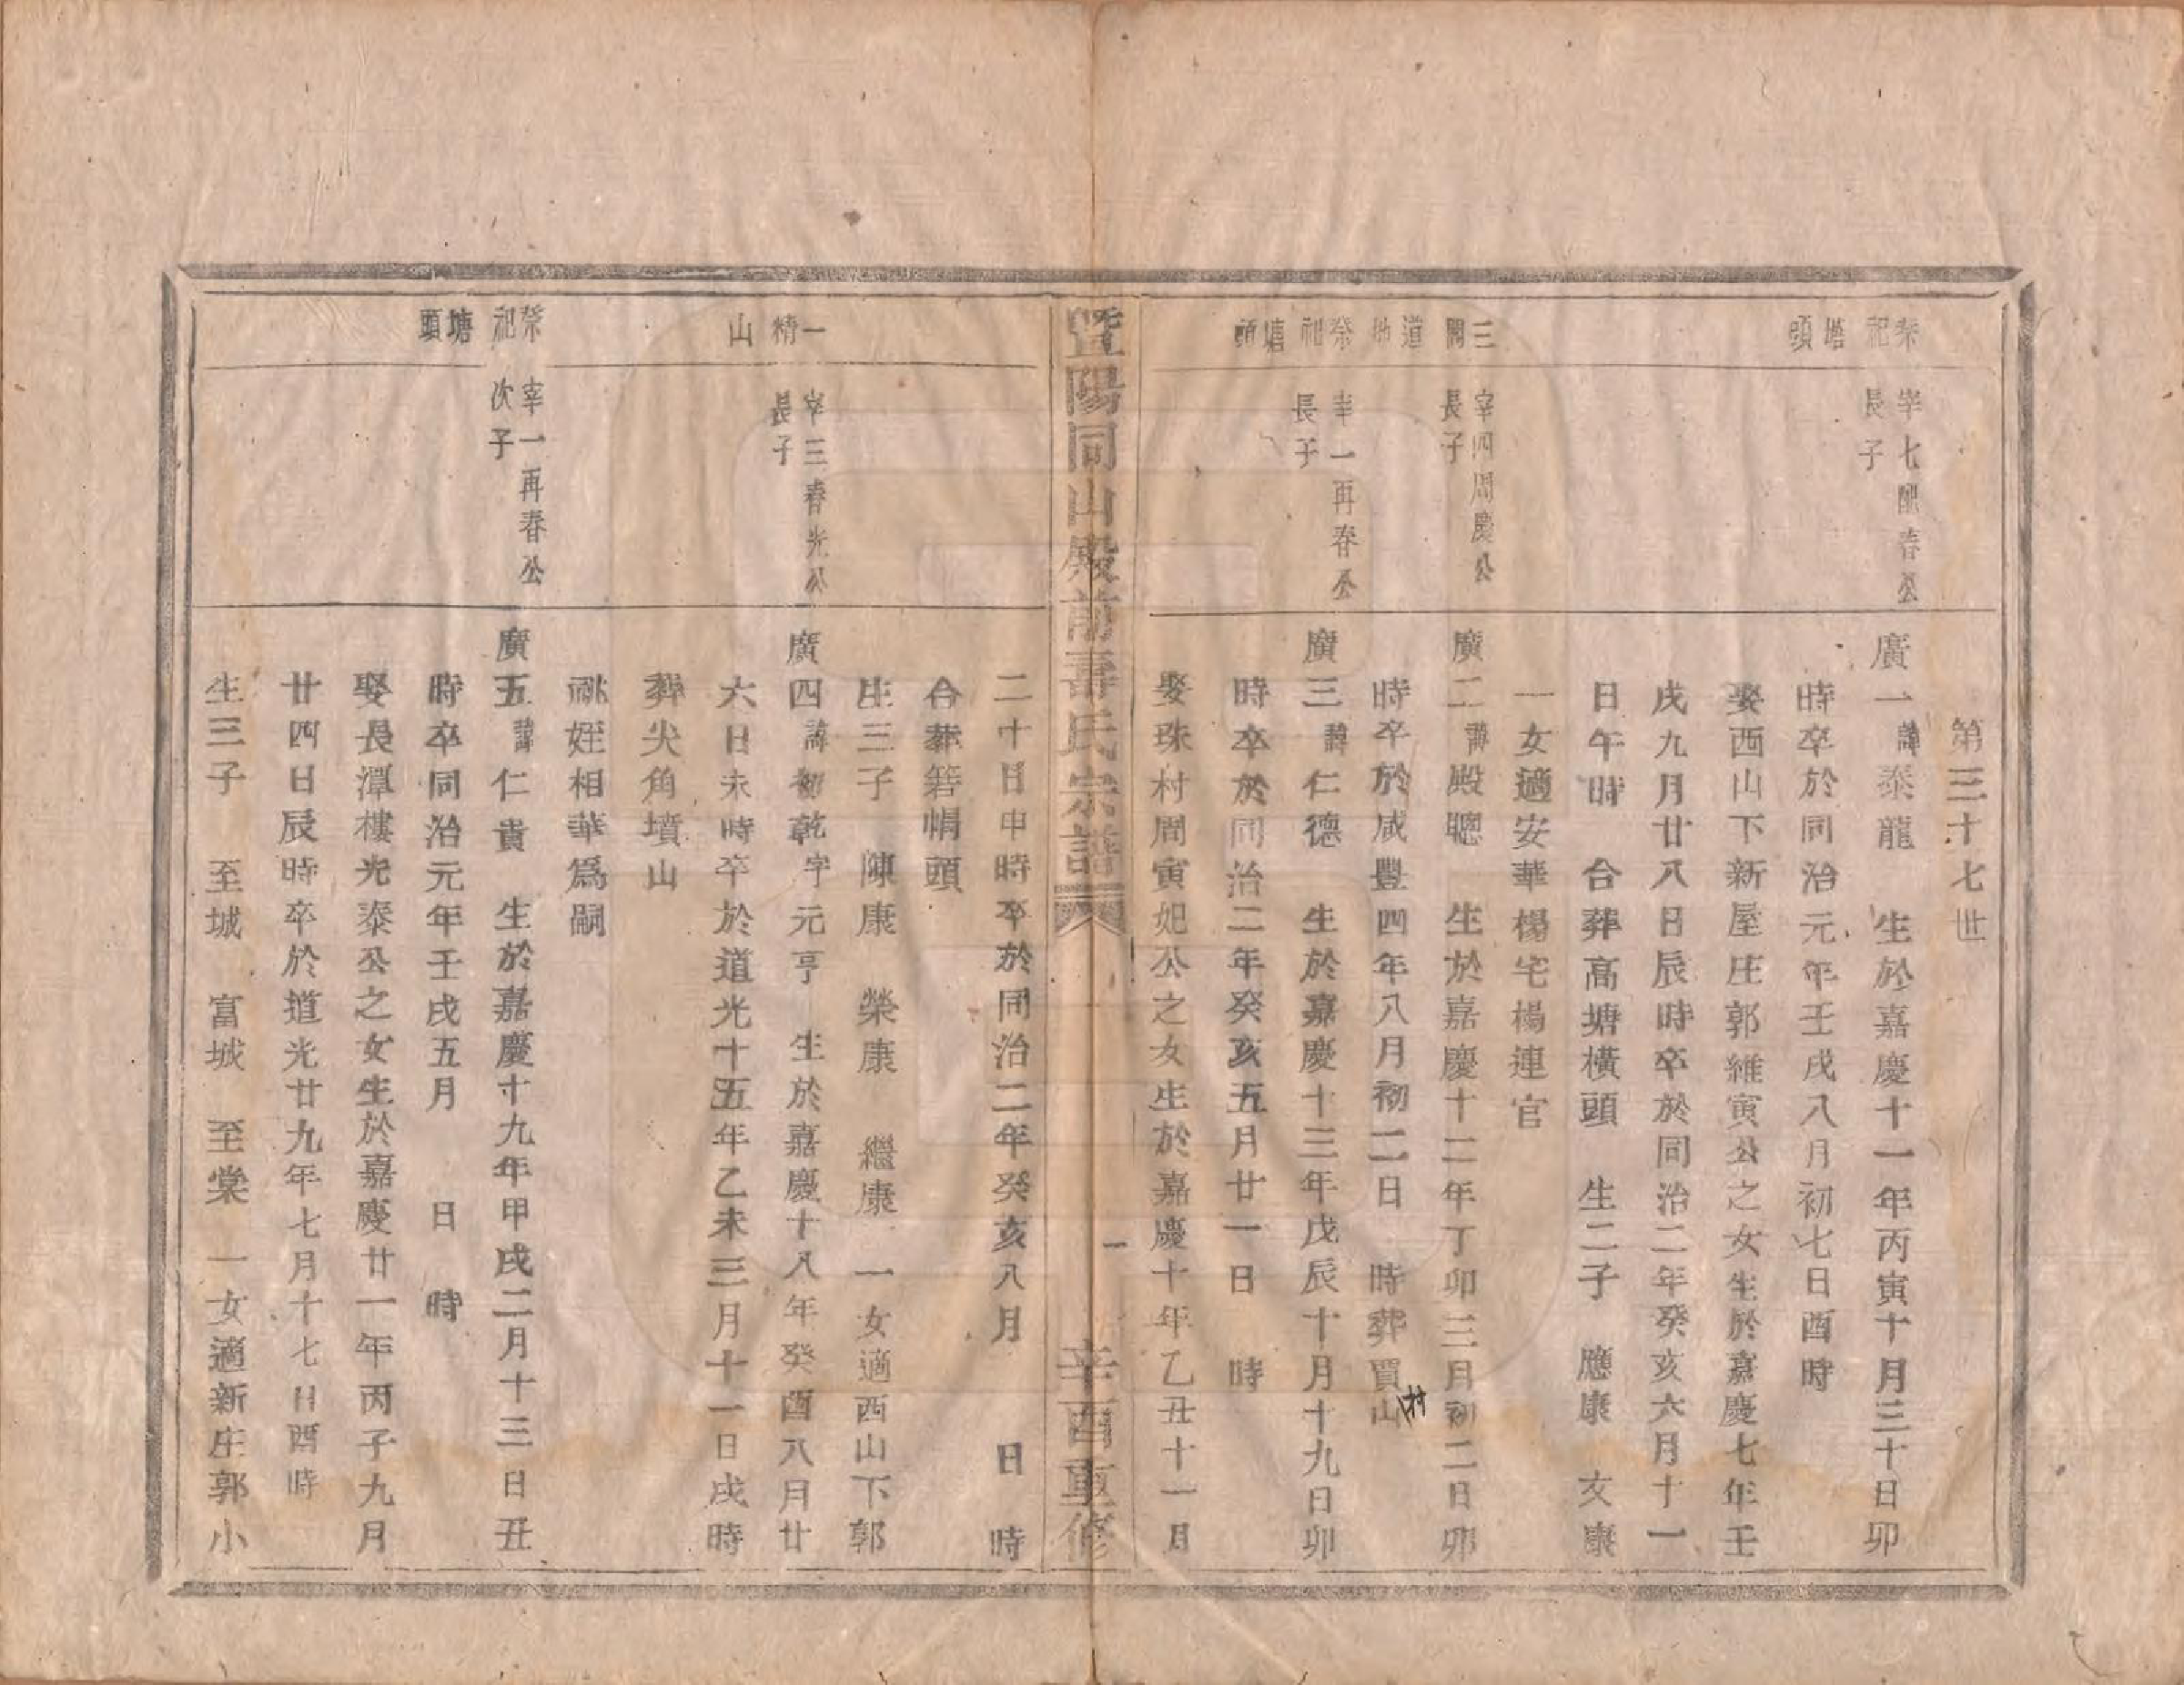 第三十七世
塘頭
宰七酬春公
長子
廣一諱泰龍　生於嘉慶十一年丙寅十月三十日卯
時卒於同治元年壬戌八月初七日酉時
娶西山下新屋庄郭維寅公之女生於嘉慶七年壬
戌九月廿八日辰時卒於同治二年癸亥六月十一
日午時　合葬高塘橫頭　生二子　應康　友康
一女適安華楊宅楊連官
三間道地
宰四周慶公
長子
廣二諱殿聰　生於嘉慶十二年丁卯三月初二日卯
時卒於咸豐四年八月初二日　時葬買山
塘頭
宰一再春公
長子
廣三諱仁德　生於嘉慶十三年戊辰十月十九日卯
時卒於同治二年癸亥五月廿一日　時
娶珠村周寅妃公之女生於嘉慶十年乙丑十一月
暨陽同山殿前壽氏宗譜　一　辛酉重修
二十日申時卒於同治二年癸亥八月　日　時
合葬箬帽頭
生三子　陳康　榮康　繼康　一女適西山下郭
一精山
宰三春光公
長子
廣四諱初乾字元亨　生於嘉慶十八年癸酉八月廿
六日未時卒於道光十五年乙未三月十一日戌時
葬尖角墳山
祧姪相華爲嗣
塘頭
宰一再春公
次子
廣五諱仁貴　生於嘉慶十九年甲戌二月十三日丑
時卒同治元年壬戌五月　日　時
娶長潭樓光泰公之女生於嘉慶廿一年丙子九月
廿四日辰時卒於道光廿九年七月十七日酉時
生三子　至城　富城　至棠　一女適新庄郭小